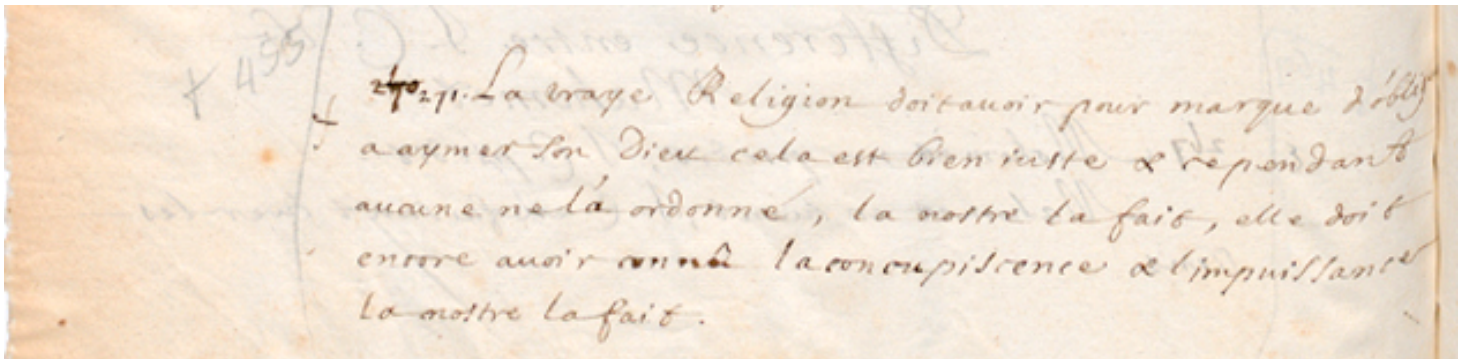 + 435
271. La vraye Religion doit avoir pour marque d'oblig
a aymer son Dieu cela est bien iuste & cependant
aucune ne l'a ordonné, la nostre la fait, elle doit
encore avoir connû la concupiscence & l'impuissance
la nostre la fait.